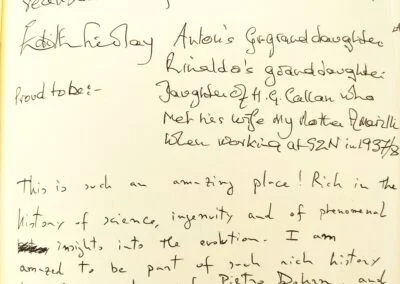 Edith Finlay Anton's Grgranddaughter
Rinaldo's granddaughter
Proud to be:- Daughter of H.G. Callan who
met his wife my Mother Amarillis
when working at SZN in 1937/8
This is such an amazing place! Rich in the
history of science, ingenuity and of phenomenal
insights into the evolution. I am
amazed to be part of such rich history
of Pietro Dohrn, and